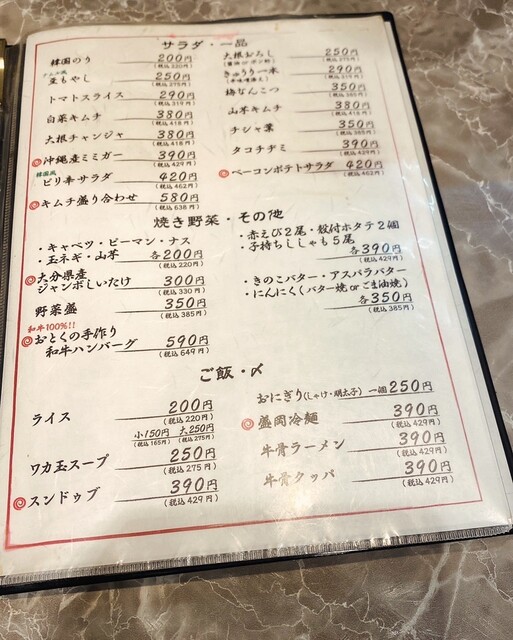 サラダ・一品
韓国のり 200円
(税込220円)
ナムル風
豆もやし 250円
(税込275円)
トマトスライス 290円
(税込319円)
白菜キムチ 380円
(税込418円)
大根チャンジャ 380円
(税込418円)
沖縄産ミミガー 390円
(税込429円)
韓国風
ピリ辛サラダ 420円
(税込462円)
キムチ盛り合わせ 580円
(税込638円)
大根おろし 250円
(税込275円)
きゅうり一本 290円
(税込319円)
梅なんこつ 350円
(税込385円)
山芋キムチ 380円
(税込418円)
チシャ葉 350円
(税込385円)
タコチヂミ 390円
(税込429円)
ベーコンポテトサラダ 420円
(税込462円)
焼き野菜・その他
・キャベツ・ピーマン・ナス
・玉ネギ・山芋 各200円
(税込220円)
大分県産
ジャンボしいたけ 300円
(税込330円)
野菜盛 350円
(税込385円)
和牛100%!!
おとくの手作り
和牛ハンバーグ 590円
(税込649円)
・赤えび2尾・殻付ホタテ2個
・子持ちししゃも5尾
各390円
(税込429円)
・きのこバター・アスパラバター
・にんにく(バター焼orごま油焼)
各350円
(税込385円)
ご飯・〆
ライス 200円
(税込220円)
小150円 大250円
(税込165円) (税込275円)
ワカ玉スープ 250円
(税込275円)
スンドゥブ 390円
(税込429円)
おにぎり(しゃけ・明太子) 一個250円
(税込275円)
盛岡冷麺 390円
(税込429円)
牛骨ラーメン 390円
(税込429円)
牛骨クッパ 390円
(税込429円)